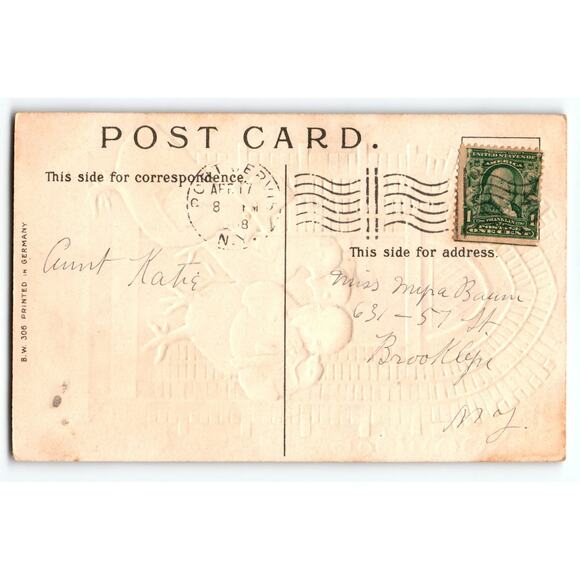 POST CARD.
This side for correspondence.
PORT JERVIS
APR 17
8
N.Y.
UNITED STATES OF
AMERICA
FRANKLIN
1 1
POSTAGE
ONE CENT
This side for address.
Aunt Katie
Miss Myra Baum
631 - 57 St.
Brooklyn
N.Y.
B.W. 306 PRINTED IN GERMANY